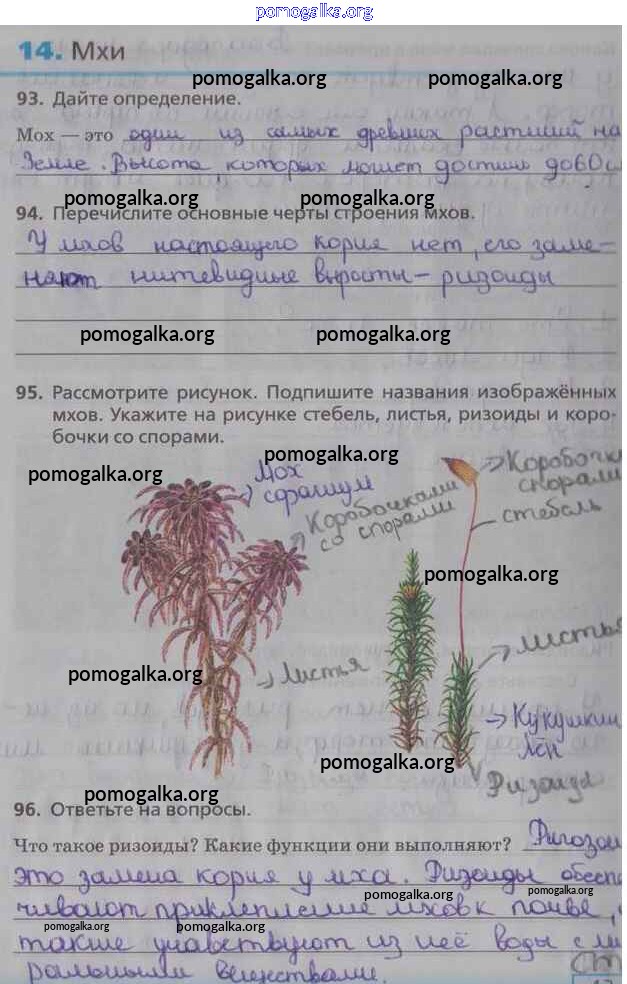 pomogalka.org
14. Мхи
pomogalka.org pomogalka.org
93. Дайте определение.
Мох — это один из самых древних растений на
Земле. Высота которых может достичь до 60 с
pomogalka.org pomogalka.org
94. Перечислите основные черты строения мхов.
У мхов настоящего корня нет, его заме-
няют нитевидные выросты – ризоиды
pomogalka.org pomogalka.org
95. Рассмотрите рисунок. Подпишите названия изображённых
мхов. Укажите на рисунке стебель, листья, ризоиды и коро-
бочки со спорами.
pomogalka.org
pomogalka.org
Мох
сфагнум
Коробочками
со спорами
Коробочк
спорами
стебель
pomogalka.org
листья
Листья
pomogalka.org
Кукушкин
лён
pomogalka.org
Ризоиды
pomogalka.org
96. Ответьте на вопросы.
Что такое ризоиды? Какие функции они выполняют?
это замена корня у мха. Ризоиды обеспе
pomogalka.org pomogalka.org
чивают приклепление мхов к почве,
pomogalka.org pomogalka.org
также учавствуют из неё воды с ми
ральными веществами.